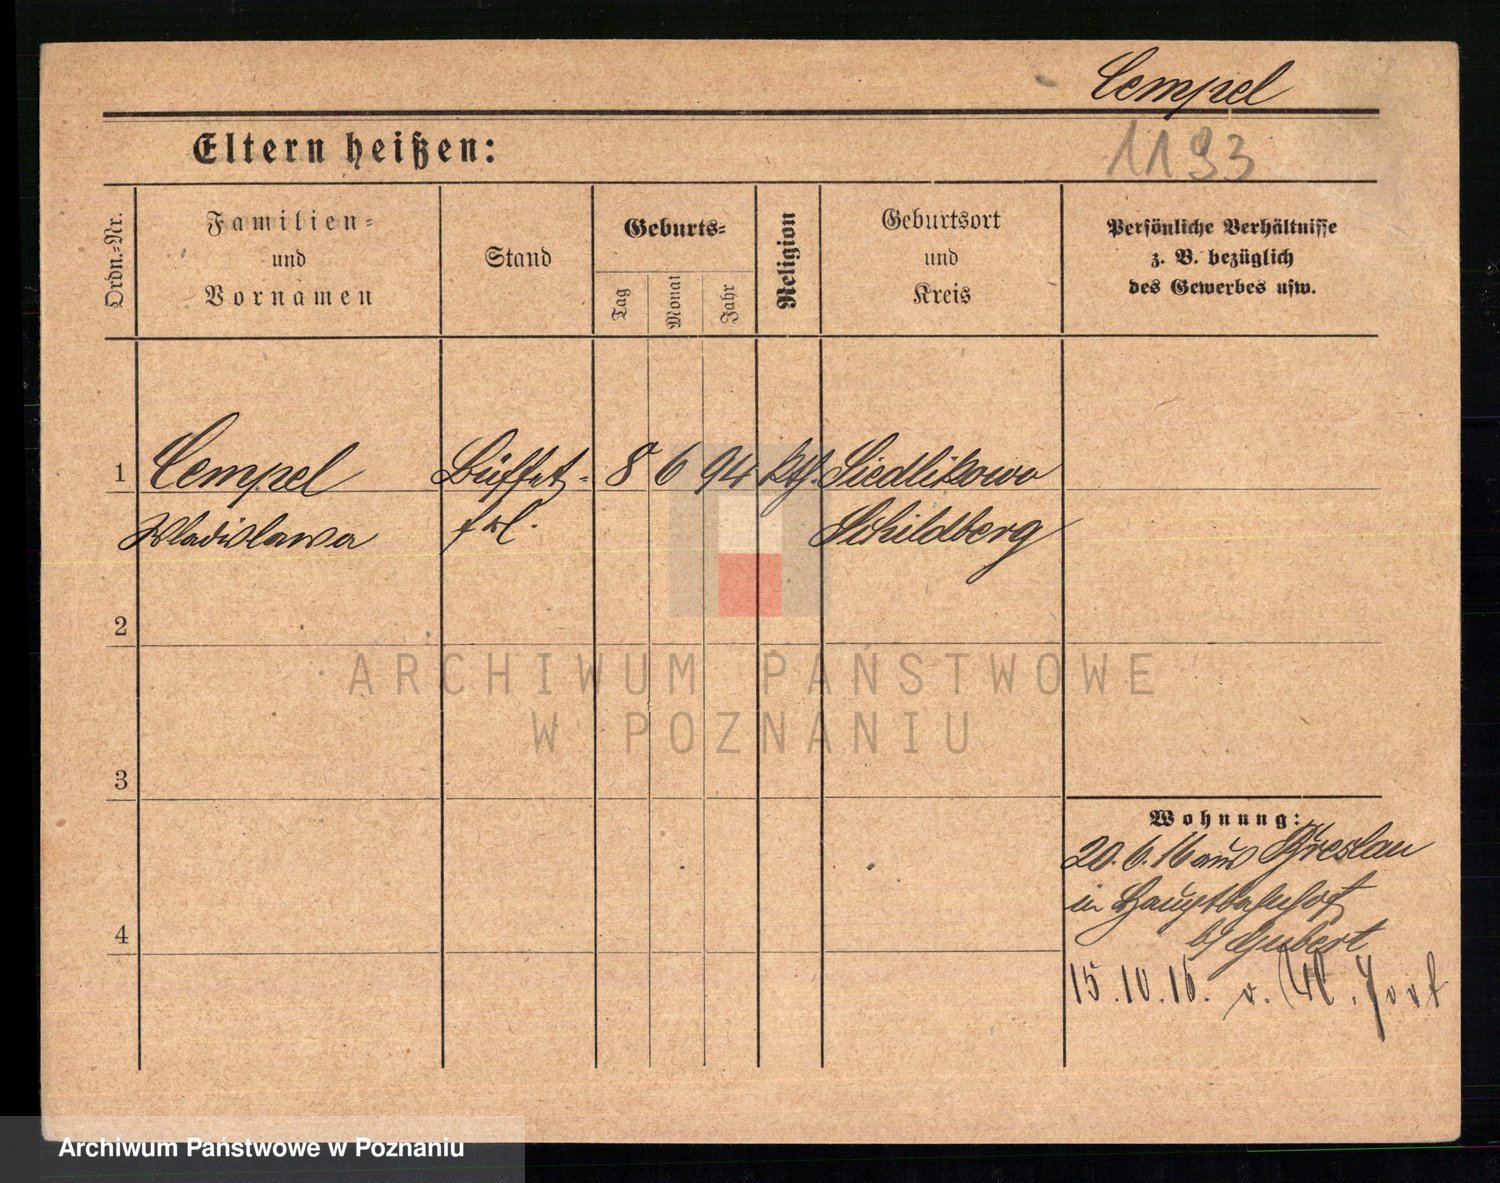 Cempel
Eltern heißen:
1193
Ordn.-Nr.
Familien-
und
Vornamen
Stand
Geburts-
Tag
Monat
Jahr
Religion
Geburtsort
und
Kreis
Persönliche Verhältnisse
z. B. bezüglich
des Gewerbes usw.
1 Cempel Büffet- 8 6 94 kth. Siedlikowo
Wladislawa frl. Schildberg
2
ARCHIWUM PAŃSTWOWE
W POZNANIU
3
Wohnung:
20.6.16 aus Breslau
in Hauptbahnhof
4
b/ Hubert
15.10.16. v.
Archiwum Państwowe w Poznaniu